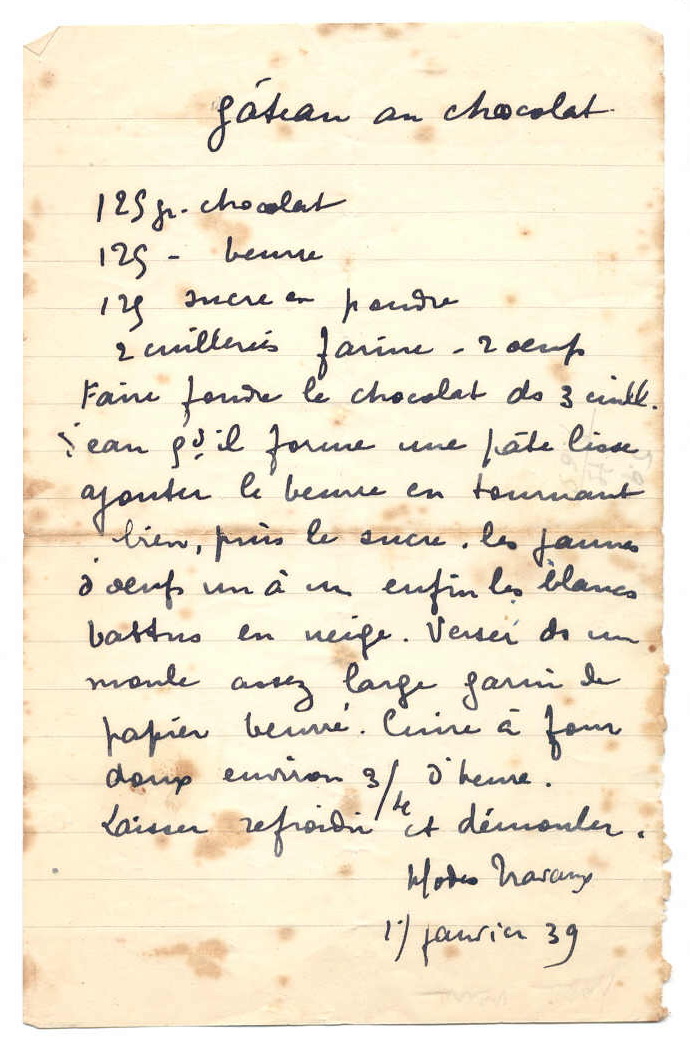 gâteau au chocolat
125 gr. chocolat
125 - beurre
125 sucre en poudre
2 cuillerées farine - 2 oeufs
Faire fondre le chocolat ds 3 cuill.
d'eau qd il forme une pâte lisse
ajouter le beurre en tournant
bien, puis le sucre. les jaunes
d'oeufs un à un enfin les blancs
battus en neige. Verser ds un
moule assez large garni de
papier beurré. Cuire à four
doux environ 3/4 d'heure.
Laisser refroidir et démouler.
Modes Travaux
1/ janvier 39